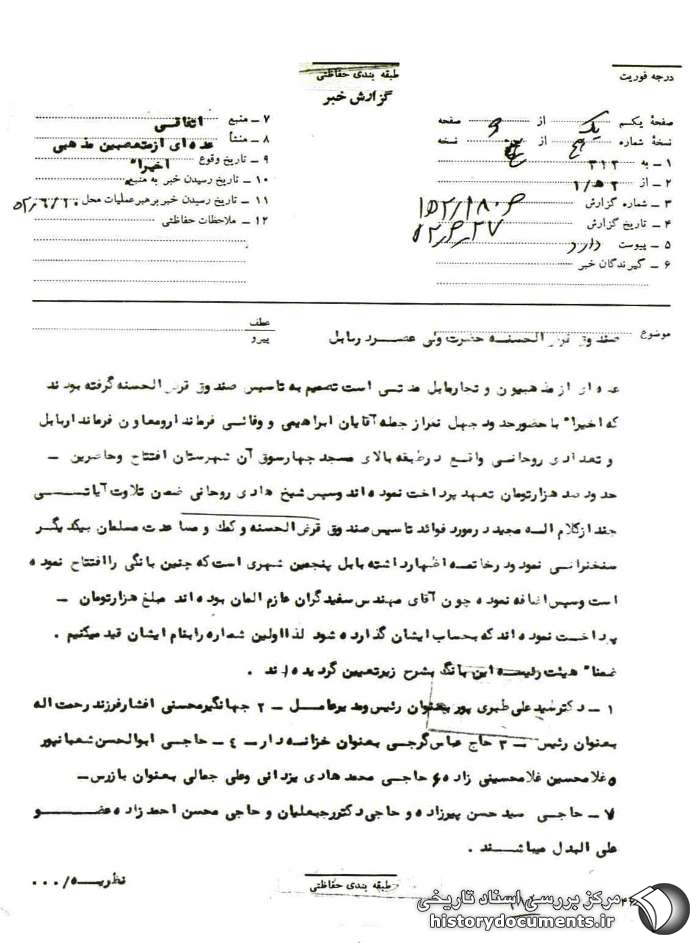 درجه فوریت
طبقه بندی حفاظتی
گزارش خبر
صفحهٔ یکم یک از صفحه
نسخهٔ شماره از نسخه
۱ ـ به ۳۱۲
۲ ـ از ۲ ه‍/۱
۳ ـ شماره گزارش
۴ ـ تاریخ گزارش
۵ ـ پیوست دارد
۶ ـ گیرندگان خبر
۷ ـ منبع اتفاقی
۸ ـ منشأ عده ای ازمتعصبین مذهبی
۹ ـ تاریخ وقوع اخیرا"
۱۰ ـ تاریخ رسیدن خبر به منبع
۱۱ ـ تاریخ رسیدن خبر برهبرعملیات محل ۵۲/۰۶/۲۰
۱۲ ـ ملاحظات حفاظتی
موضوع صندوق قرض الحسنه حضرت ولی عصر دربابل
عطف
پیرو
عده ای از مذهبیون و تجاربابل مدتی است تصمیم به تاسیس صندوق قرض الحسنه گرفته بودند
که اخیرا" با حضورحدود چهل نفراز جمله آقایان ابراهیمی و وقائی فرماندارومعاون فرمانداربابل
و تعدادی روحانی واقع درطبقه بالای مسجد چهارسوق آن شهرستان افتتاح وحاضرین ـ
حدود صد هزارتومان تعهد پرداخت نموده اند وسپس شیخ هادی روحانی ضمن تلاوت آیاتی
چند ازکلام اله مجید درمورد فوائد تاسیس صندوق قرض الحسنه و کمک و مساعدت مسلمان بیکدیگر
سخنرانی نمود ودرخاتمه اظهارداشته بابل پنجمین شهری است که چنین بانگی راافتتاح نموده
است وسپس اضافه نموده چون آقای مهندس سفیدگران عازم المان بوده اند مبلغ هزارتومان ـ
پرداخت نموده اند که بحساب ایشان گذارده شود لذااولین شماره رابنام ایشان قید میکنیم .
ضمنا" هیئت رئیسه این بانگ بشرح زیرتعیین گردیده اند .
۱ ـ دکترسیدعلی طبری پور بعنوان رئیس ومدیرعامل ـ ۲ جهانگیرمحسنی افشارفرزند رحمت اله
بعنوان رئیس ـ ۳ حاج عباس گرجی بعنوان خزانه دار ـ ۴ ـ حاجی ابوالحسن شعبانپور
۵ غلامحسین غلامحسینی زاده ۶ حاجی محمد هادی یزدانی وعلی جمالی بعنوان بازرس ـ
۷ ـ حاجی سید حسن پیرزاده و حاجی دکتررجبعلیان و حاجی محسن احمدزاده عضو
علی البدل میباشند .
نظریه / ...
طبقه بندی حفاظتی
مرکز بررسی اسناد تاریخی
historydocuments.ir